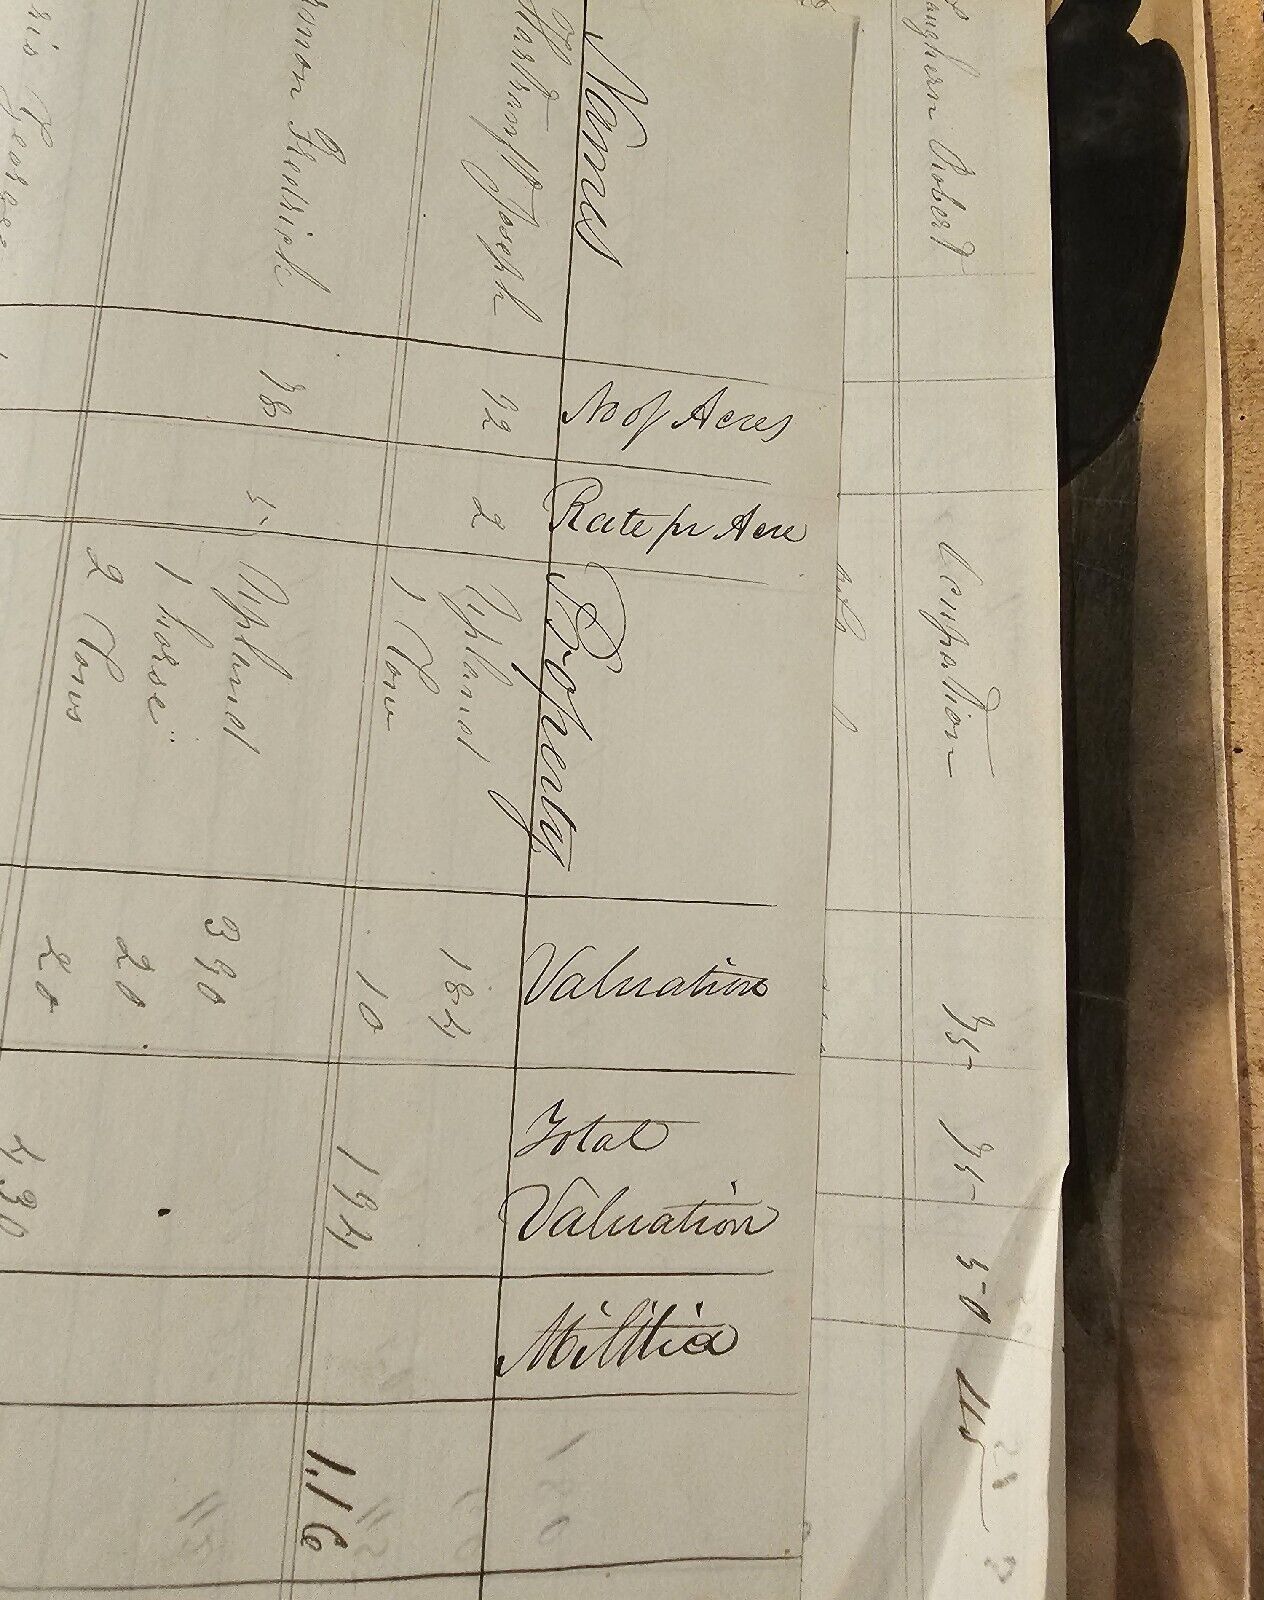 Robert Occupation 75- 75- 50
Names No of Acres Rate pr Acre Property Valuation Total Valuation Militia
Hartranft Joseph 92 2 Upland 184
1 Cow 10 194 1,16
Fredrick 78 5- Upland 390
1 horse 20
2 Cows 20 430
George